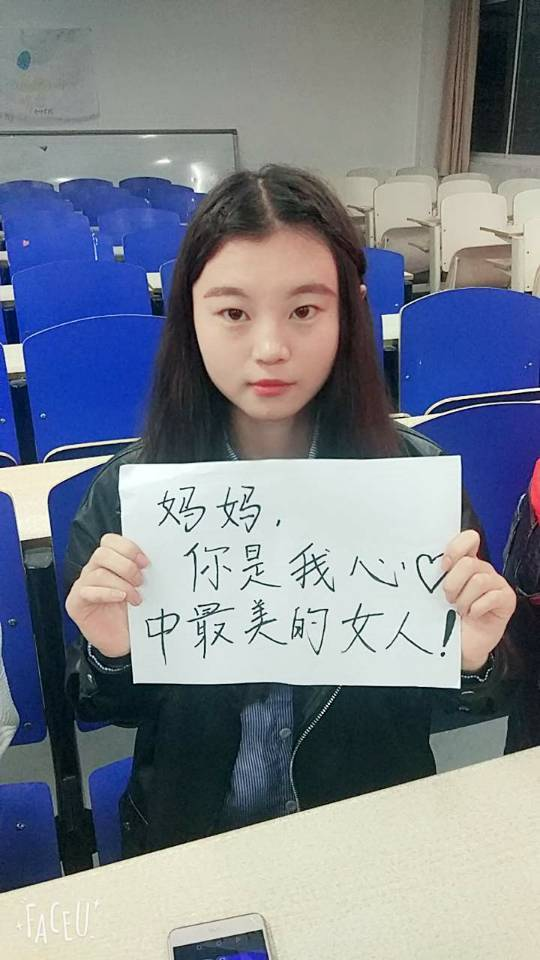 妈妈，
你是我心♡
中最美的女人！
FACEU